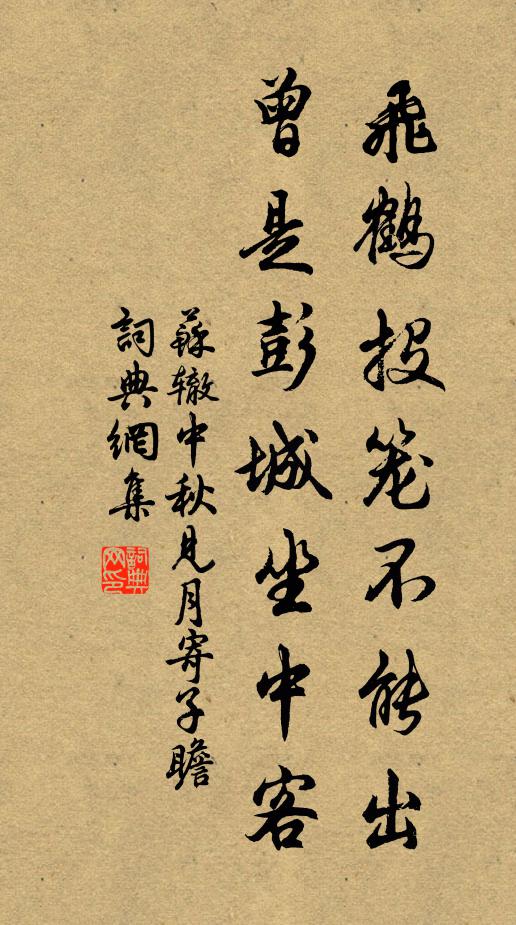 飛鶴投笼不能出
曾是彭城坐中客
蘇辙中秋見月寄子瞻
詞典網集
詞典網印